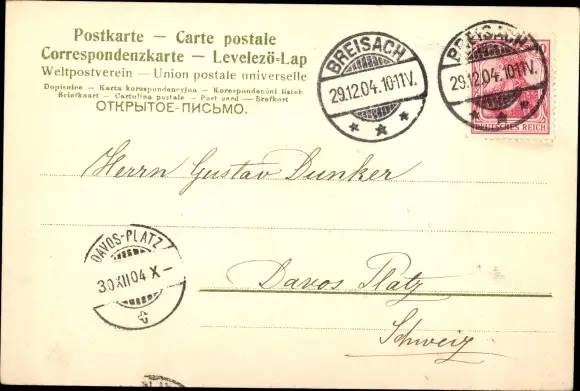 Postkarte — Carte postale
Correspondenzkarte — Levelező-Lap
Weltpostverein — Union postale universelle
Dopisnice — Karta korespondencyjna — Korespondenční lístek
Briefkaart — Cartolina postale — Post card — Brefkort
ОТКРЫТОЕ-ПИСЬМО.
BREISACH
29.12.04.10-11V.
BREISACH
29.12.04.10-11V.
10
DEUTSCHES REICH
Herrn Gustav Dunker
DAVOS-PLATZ
30.XII.04 X—
Davos Platz
Schweiz